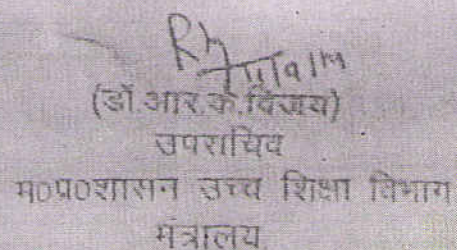 (डॉ.आर.के.विजय)
उपसचिव
म0प्र0शासन उच्च शिक्षा विभाग
मंत्रालय